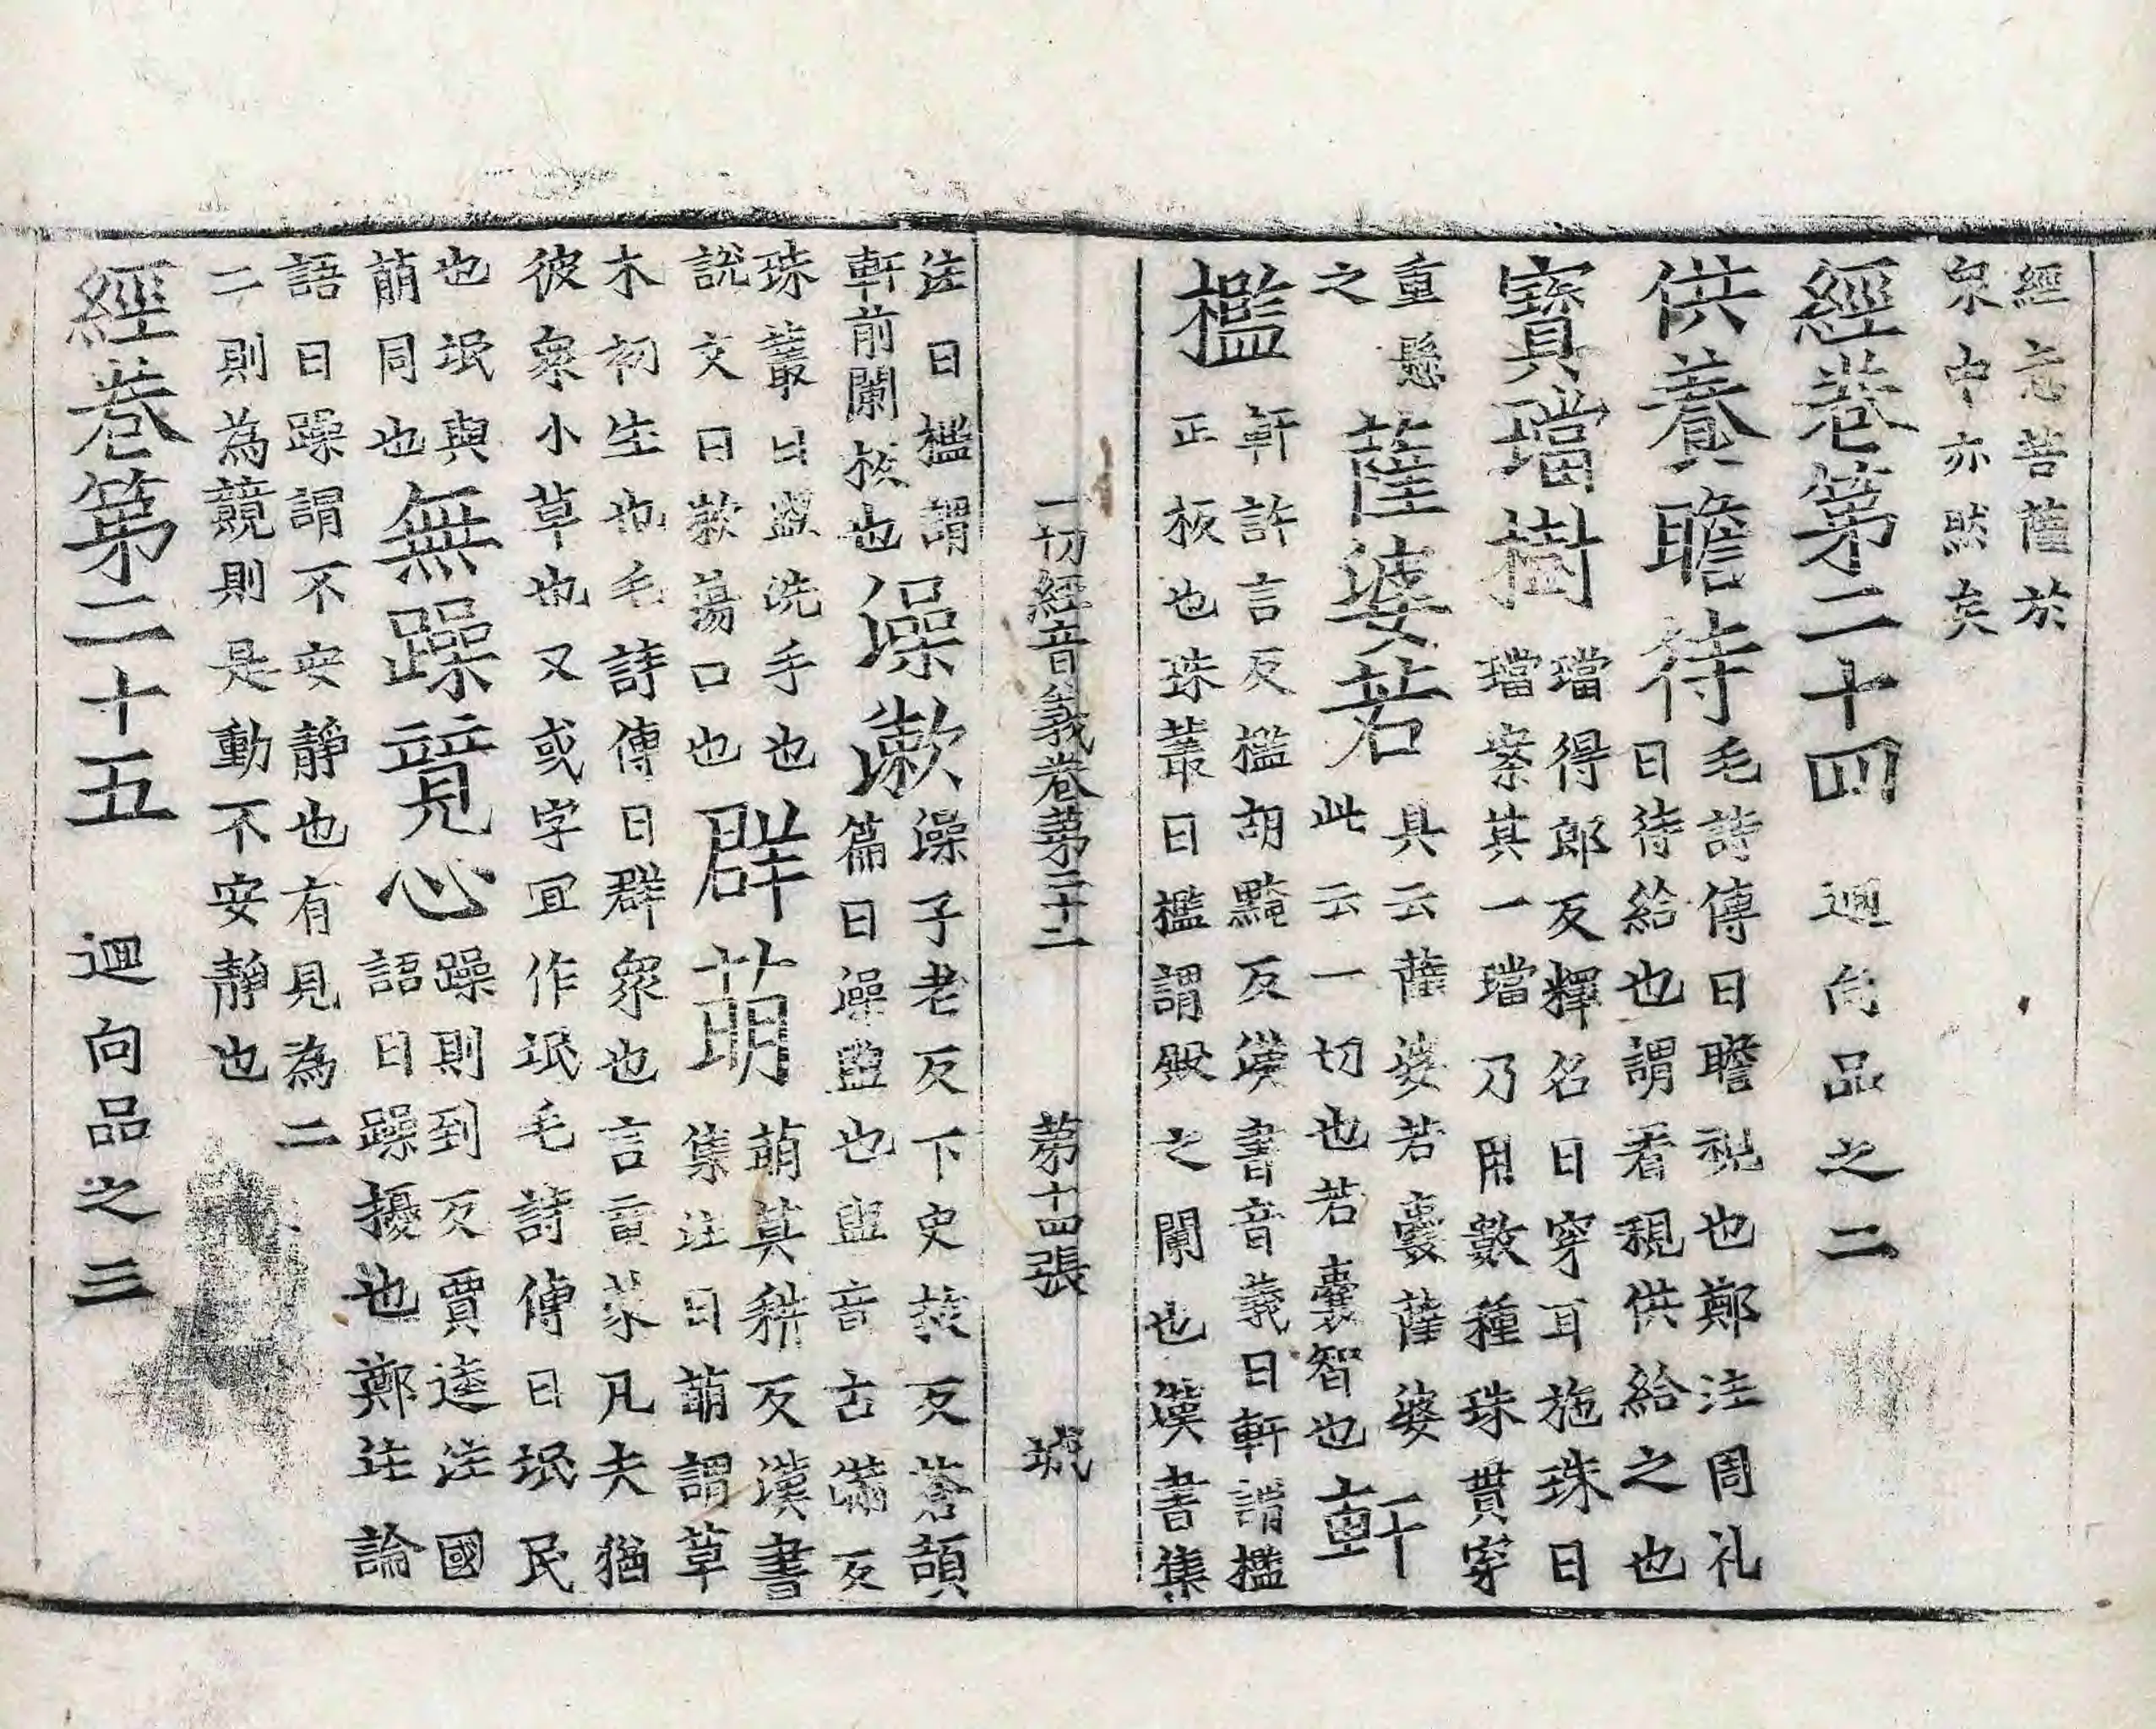 經意菩薩於
衆中亦然矣
經卷第二十四　迴向品之二
供養瞻待
毛詩傳曰瞻視也鄭注周礼
曰待給也謂看視供給之也
寶璫樹
璫得郎反釋名曰穿耳施珠曰
璫案其一璫乃用數種珠貫穿
重懸
之
薩婆若
具云薩婆若囊薩婆
此云一切也若囊智也
軒
檻
軒許言反檻胡黤反漢書音義曰軒謂檻
正板也珠叢曰檻謂殿之闌也漢書集
一切經音義卷第二十二　第十四張　城
注曰檻謂
軒前闌板也
澡漱
澡子老反下史救反蒼頡
篇曰澡盥也盥音古滿反
珠叢曰盥洗手也
說文曰漱蕩口也
群萌
萌莫耕反漢書
集注曰萌謂草
木初生也毛詩傳曰群衆也言童蒙凡夫猶
彼衆小草也又或字冝作氓毛詩傳曰氓民
也氓與
萠同也
無躁竟心
躁則到反賈逵注國
語曰躁擾也鄭注論
語曰躁謂不安靜也有見為二
二則為競則是動不安靜也
經卷第二十五　迴向品之三